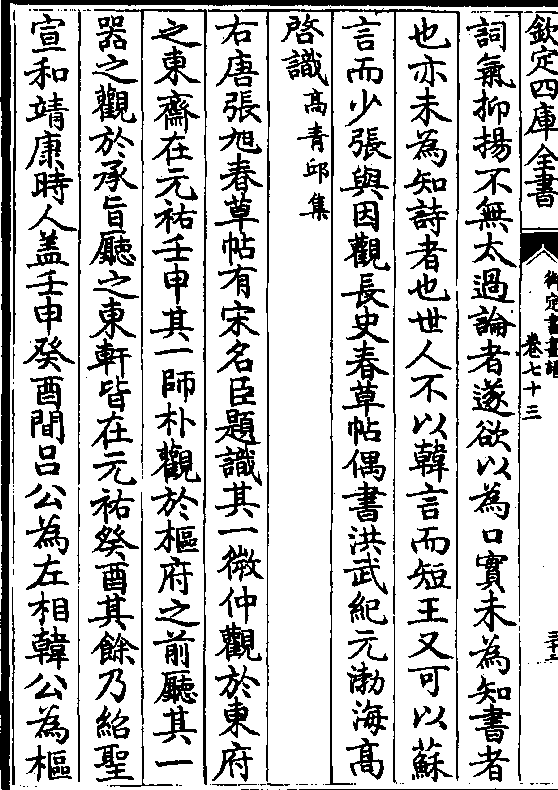 欽定四庫全書
卷七十三
詞氣抑揚不無太過論者遂欲以為口實未為知書者
也亦未為知詩者也世人不以韓言而短王又可以蘇
言而少張與因觀長史春草帖偶書洪武紀元渤海高
啓識高青邱集
右唐張旭春草帖有宋名臣題識其一微仲觀於東府
之東齋在元祐壬申其一師朴觀於樞府之前廳其一
器之觀於承旨廳之東軒皆在元祐癸酉其餘乃紹聖
宣和靖康時人蓋壬申癸酉間吕公為左相韓公為樞